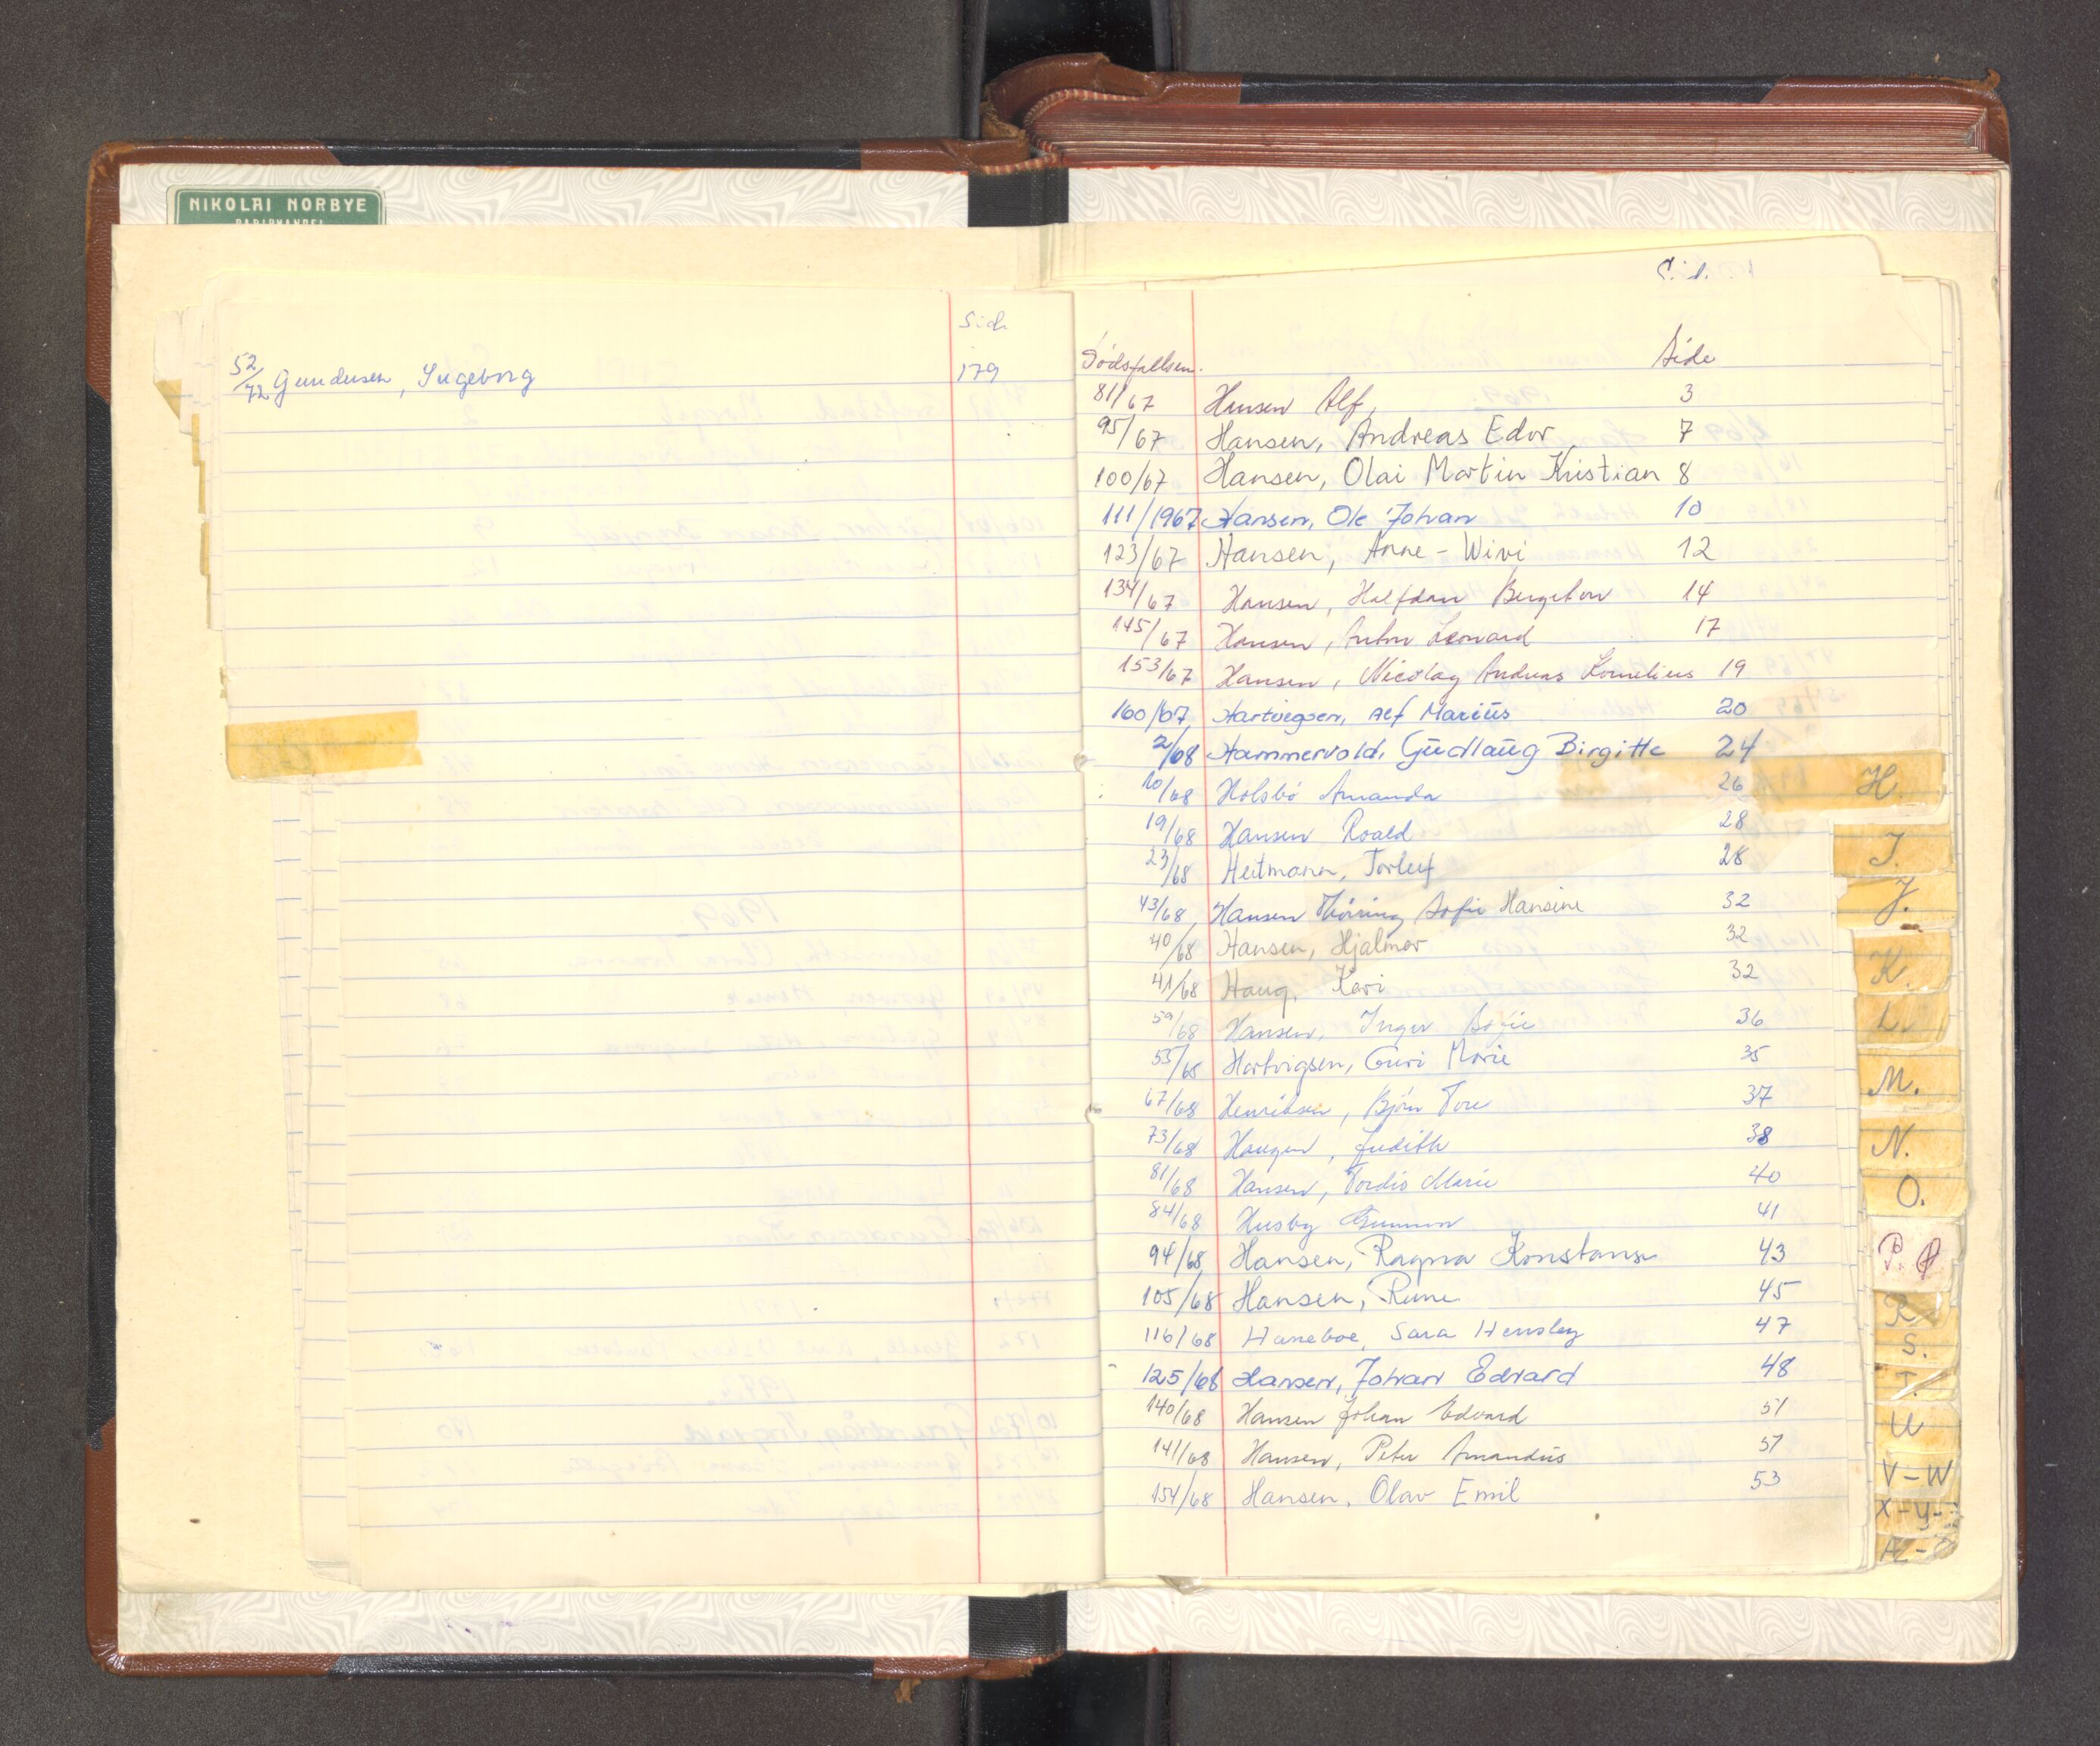 NIKOLAI NORBYE
PAPIRHANDEL
Side
52/72 Gundersen, Ingeborg 179
Dødsfallsnr. Side
81/67 Hansen Alf, 3
95/67 Hansen, Andreas Edor 7
100/67 Hansen, Olai Martin Kristian 8
111/1967 Hansen, Ole Johan 10
123/67 Hansen, Anne-Wivi 12
134/67 Hansen, Halfdan Bergeton 14
145/67 Hansen, Anton Leonard 17
153/67 Hansen, Nicolay Andreas Kornelius 19
160/67 Hartvigsen, Alf Marius 20
2/68 Hammervold, Gudlaug Birgitte 24
10/68 Holsbö Amanda 26
19/68 Hansen Roald 28
23/68 Heitmann, Torleif 28
43/68 Hansen Thöring Sofie Hansine 32
40/68 Hansen, Hjalmar 32
41/68 Haug, Kari 32
59/68 Hansen, Inger Sofie 36
55/68 Hartvigsen, Guri Marie 35
67/68 Henriksen, Bjørn Tore 37
73/68 Haugen, Judith 38
81/68 Hansen, Tordis Marie 40
84/68 Husby Gunnar 41
94/68 Hansen, Ragna Konstanse 43
105/68 Hansen, Rune 45
116/68 Haneboe, Sara Hensley 47
125/68 Hansen, Johan Edvard 48
140/68 Hansen Johan Edvard 51
141/68 Hansen, Peter Amandus 51
154/68 Hansen, Olav Emil 53
H.
I.
J.
K.
L.
M.
N.
O.
P.
R
S.
T.
U
V-W
X-Y-
Æ-